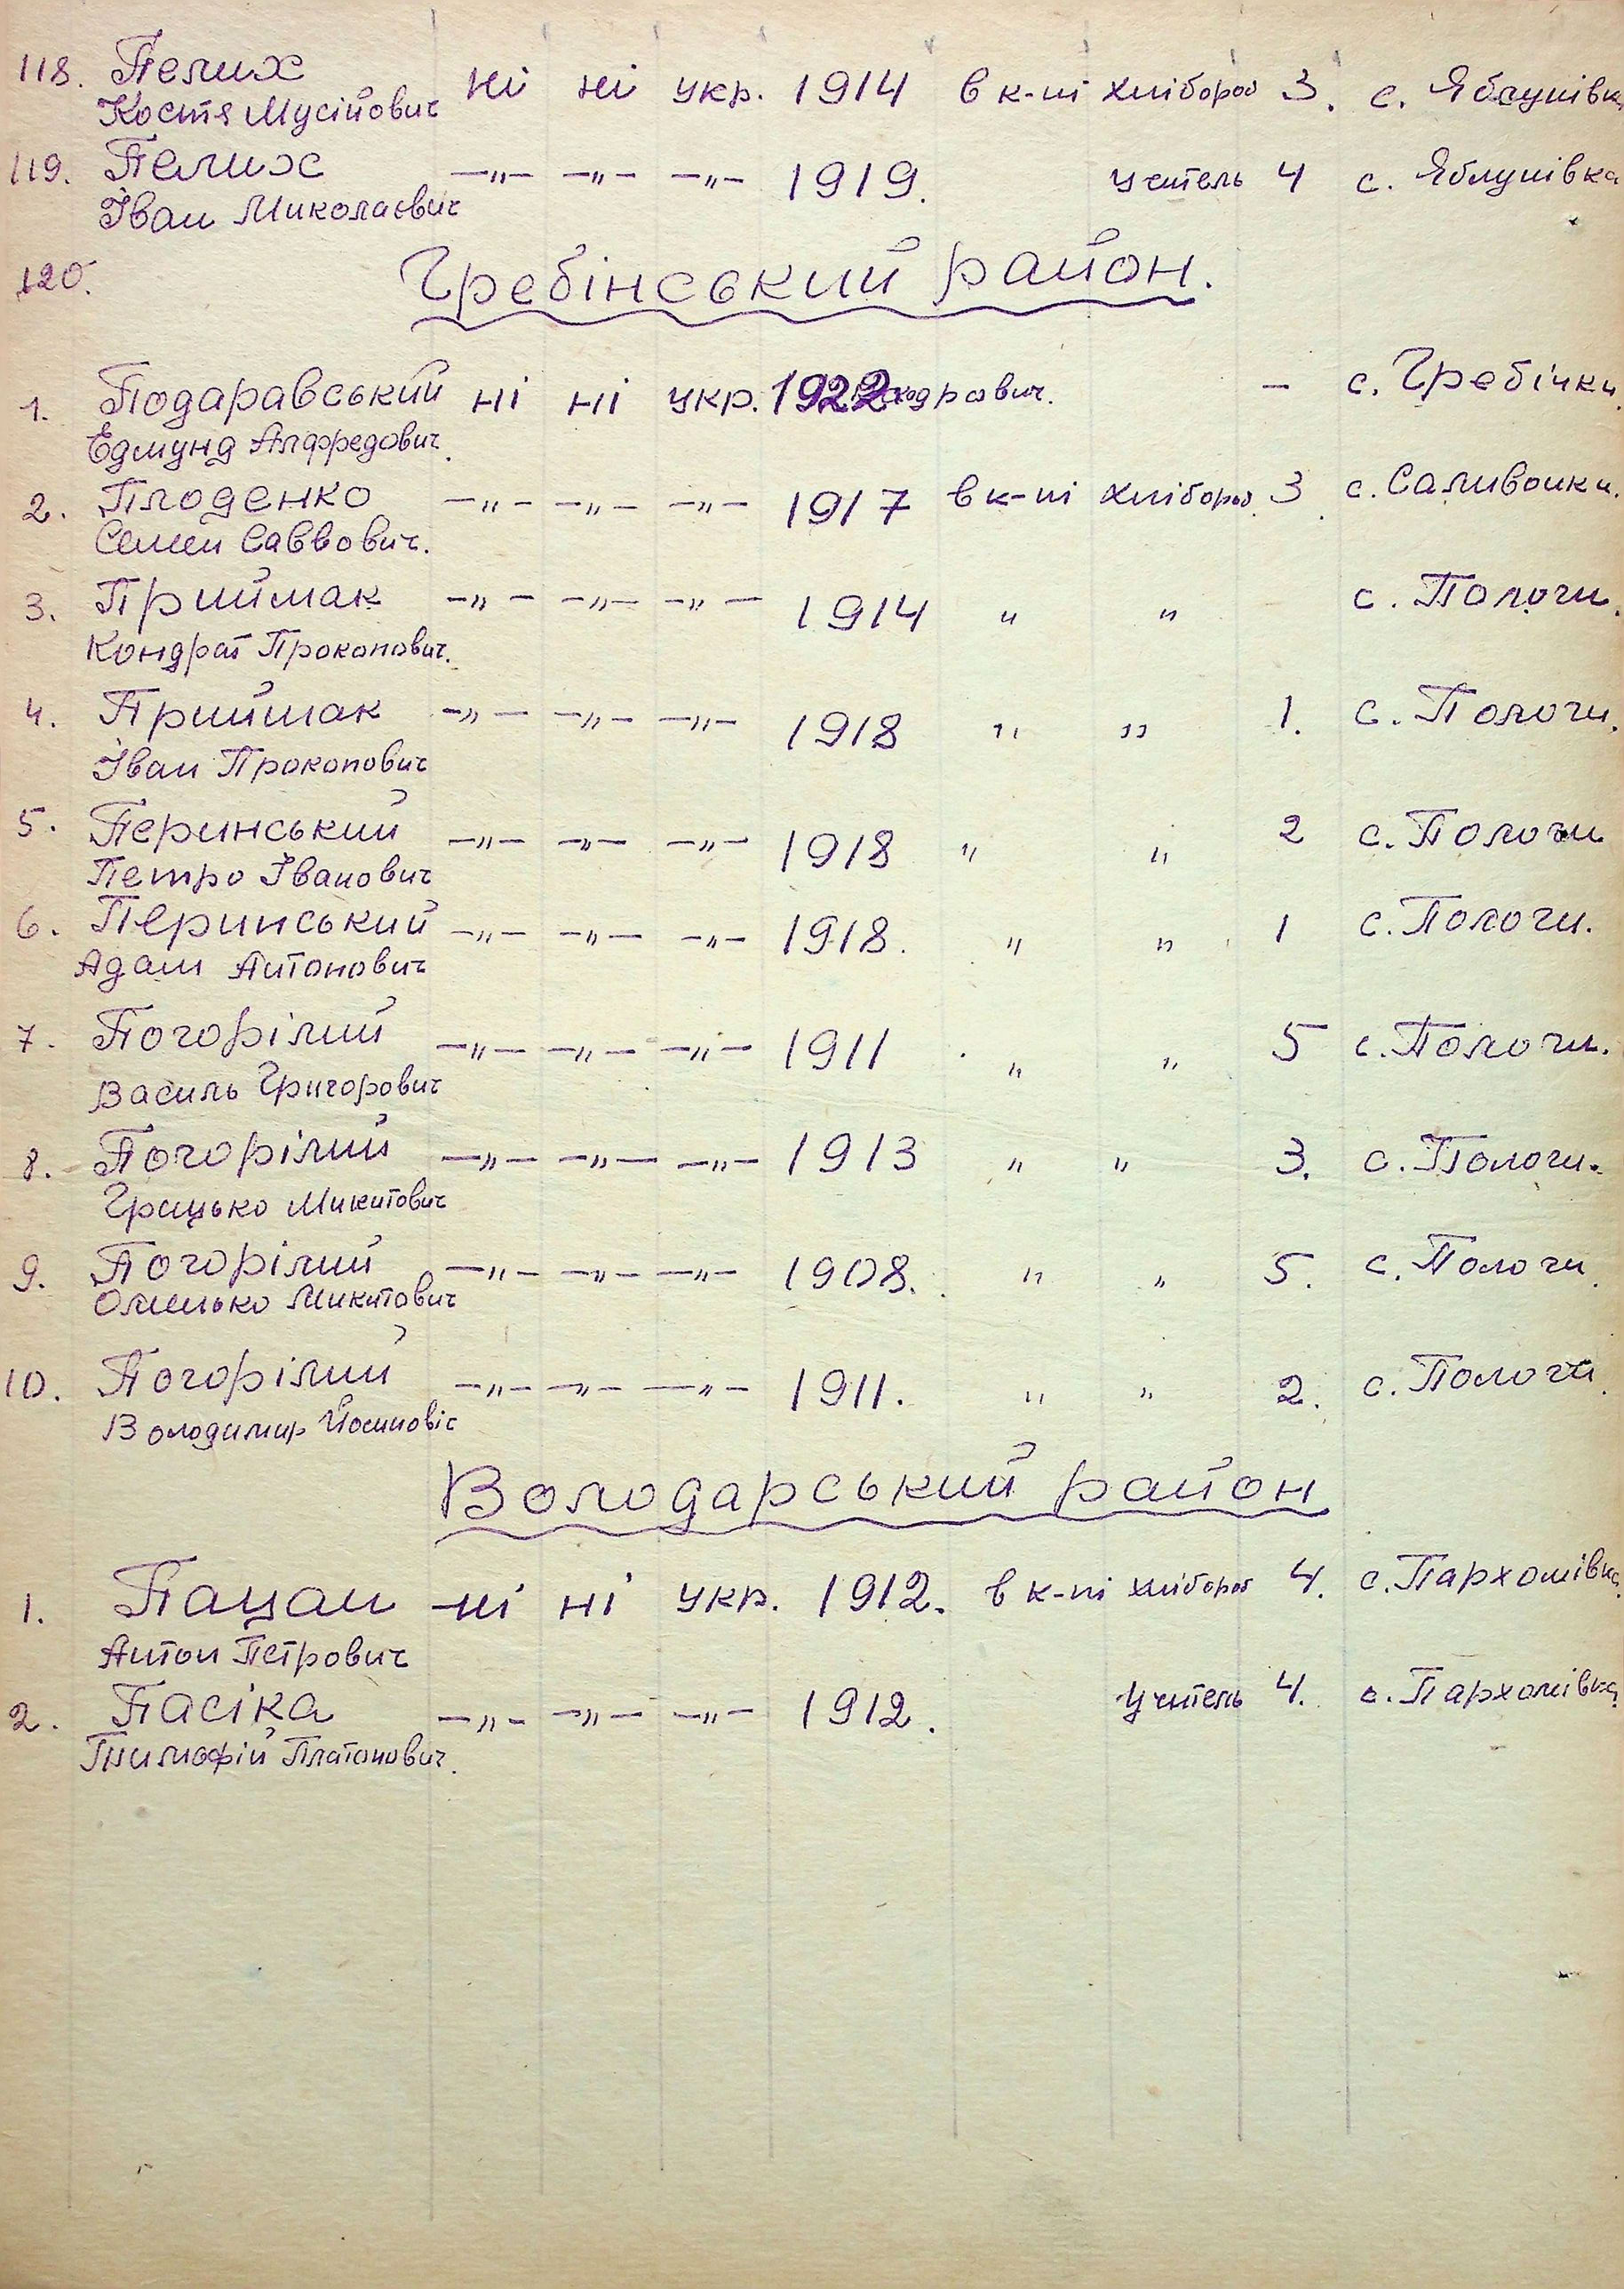 118. Пелих ні ні укр. 1914 в к-пі хлібороб 3. с. Яблунівка
Костя Мусійович
119. Пелих -„- -„- -„- 1919. учитель 4 с. Яблунівка
Іван Миколаєвич
120. Гребінський район.
1. Подаравський ні ні укр. 1922 - с. Гребінки.
Едмунд Алфредович.
2. Плоденко -„- -„- -„- 1917 в к-пі хлібороб. 3 с. Саливонки.
Семен Саввович.
3. Приймак -„- -„- -„- 1914 „ „ с. Пологи.
Кондрат Прокопович.
4. Приймак -„- -„- -„- 1918 „ „ 1. с. Пологи.
Іван Прокопович
5. Перинський -„- -„- -„- 1918 „ „ 2 с. Пологи
Петро Іванович
6. Перинський -„- -„- -„- 1918. „ „ 1 с. Пологи.
Адам Антонович
7. Погорілий -„- -„- -„- 1911 „ „ 5 с. Пологи.
Василь Григорович
8. Погорілий -„- -„- -„- 1913 „ „ 3. с. Пологи.
Грицько Микитович
9. Погорілий -„- -„- -„- 1908. „ „ 5. с. Пологи.
Омелько Микитович
10. Погорілий -„- -„- -„- 1911. „ „ 2. с. Пологи.
Володимир
Володарський район
1. Пацан ні ні укр. 1912. в к-пі хлібороб 4. с. Пархомівка.
Антон Петрович
2. Пасіка -„- -„- -„- 1912. учитель 4. с. Пархомівка
Тимофій Платонович.